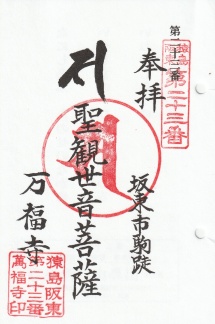 猿島阪東
第二十三番
奉拝
坂東市駒跿
聖観世音菩薩
万福寺
猿島阪東
第二十三番
萬福寺印